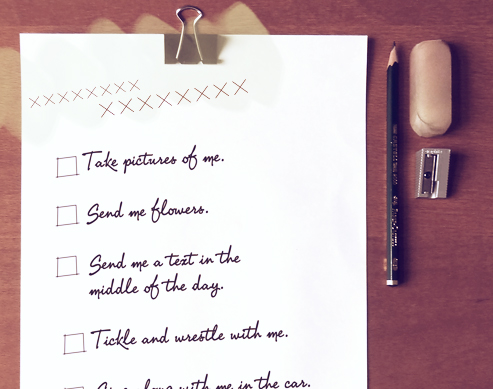 ××××××××
××××××××
Take pictures of me.
Send me flowers.
Send me a text in the
middle of the day.
Tickle and wrestle with me.
with me in the car.